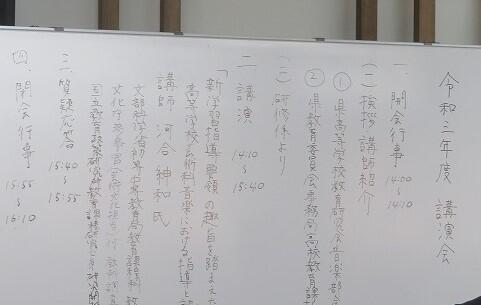 令和三年度 講演会
一、開会行事 14:00~14:10
(一)挨拶・講師紹介
①県高等学校教育研究会音楽部会
②県教育委員会事務局高校教育課
(二)研修係より
二 講演 14:10~15:40
「新学習指導要領の趣旨を踏まえた
高等学校芸術科音楽における指導と
講師 河合紳和 氏
文部科学省初等中等教育局教育課程課 教
文化庁参事官(芸術文化担当)付 教科調査
国立教育政策研究所教育課程研究センター研究開
三、質疑応答 15:40~15:55
四、閉会行事 15:55~16:10